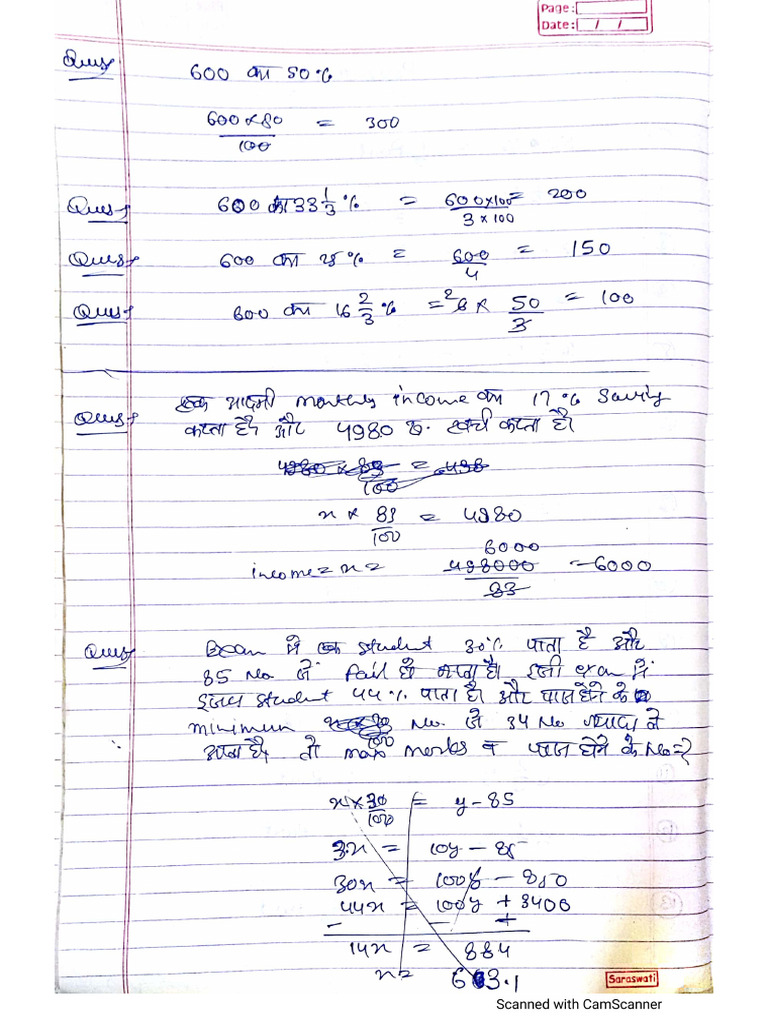 Page:
Date: / /
Ques 600 का 50%
600×50/100 = 300
Ques 600 का 33 1/3 % = 600×100/3×100 = 200
Ques 600 का 25% = 600/4 = 150
Ques 600 का 16 2/3 % = 26 × 50/3 = 100
Ques एक आदमी monthly income का 17% saving
करता है। और 4980 रु. खर्च करता है।
4980 × 83/100 = 498
x × 83/100 = 4980
6000
income = x = 498000/83 = 6000
Ques Exam में एक student 30% पाता है और
85 No से fail हो जाता है। इसी exam में
दूसरा student 44% पाता है। और पास होने के
minimum No. से 34 No ज्यादा
है, तो max marks व पास होने के No=?
x × 30/100 = y - 85
3x = 10y - 85
30x = 100y - 850
44x = 100y + 3400
- - +
14x = 884
x = 63.1
Saraswati
Scanned with CamScanner